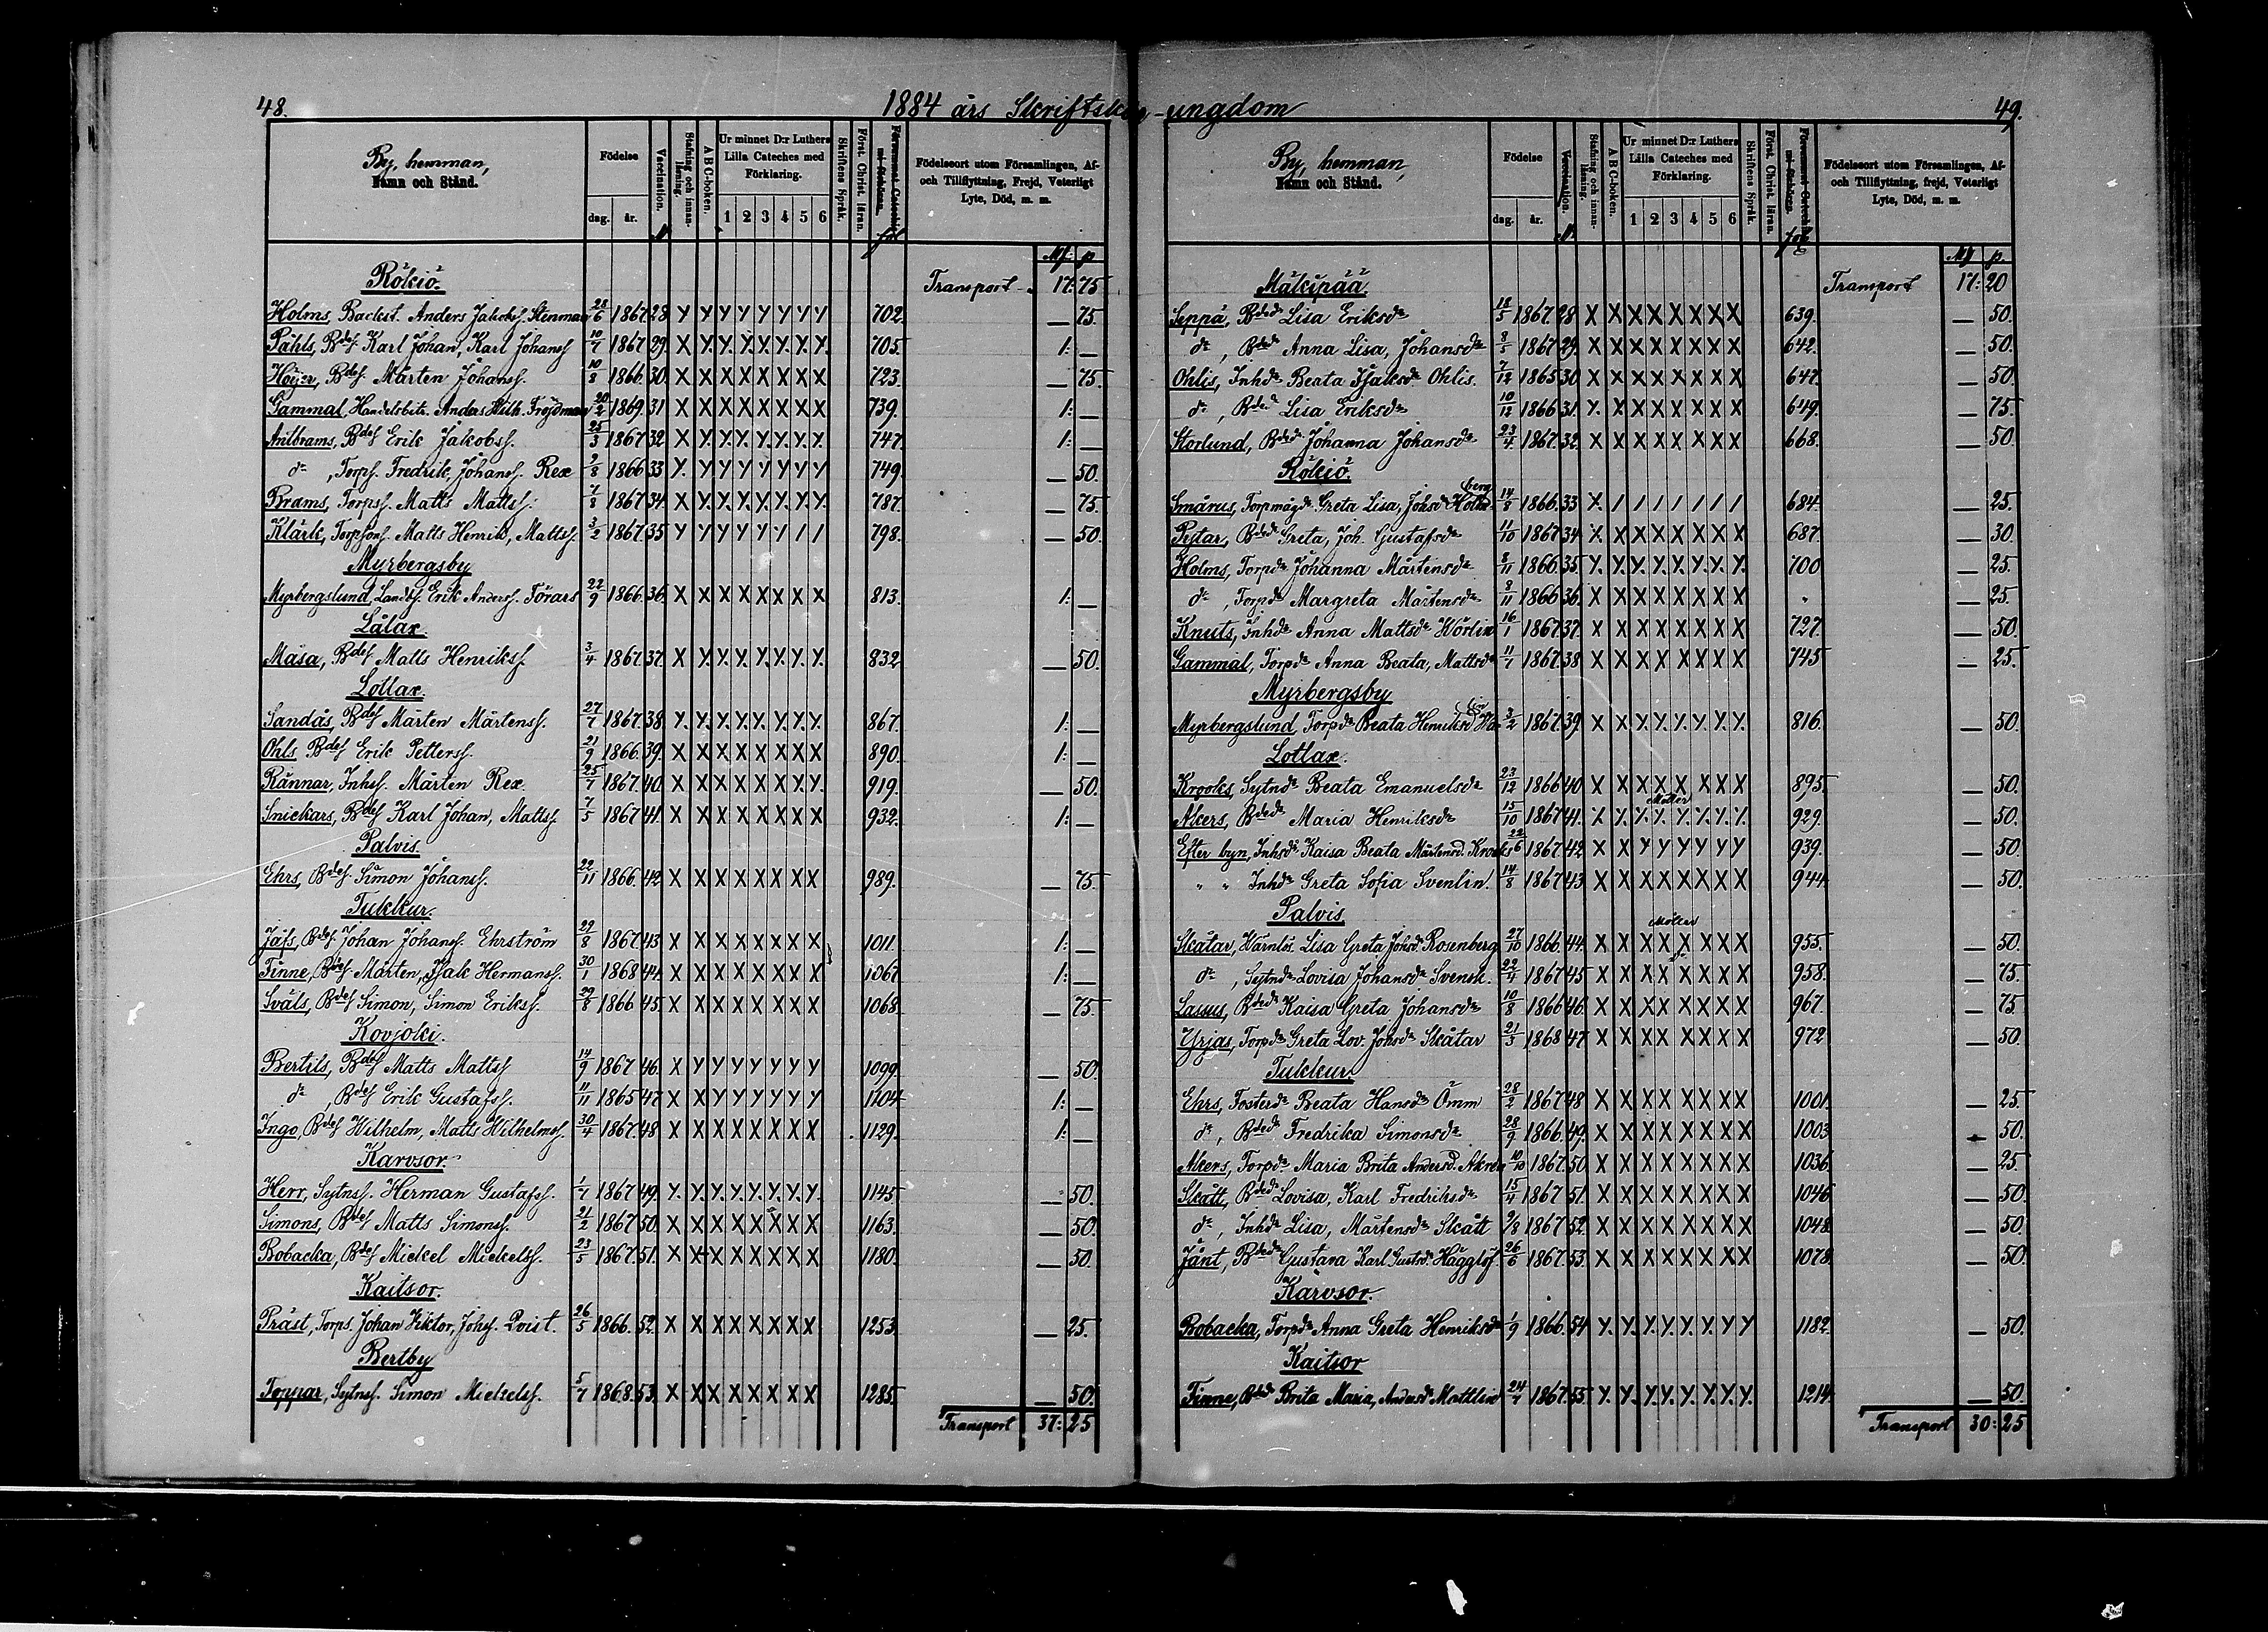 48.
1884 års Skriftskol-ungdom
By, hemman,
Namn och Stånd.
Födelse
dag. år.
Vaccination.
Stafning och innan-
läsning.
A B C-boken.
Ur minnet D:r Luthers
Lilla Cateches med
Förklaring.
1 2 3 4 5 6
Skriftens Språk.
Först. Christ. läran.
fol
Födelseort utom Församlingen, Af-
och Tillflyttning, Frejd, Veterligt
Lyte, Död, m. m.
N
Mf: p
Transport 17:75
Rökiö.
Holms, Backst. Anders Jakobs. Stenman 28/6 1867 28 X X X X X X X X 702. — 75.
Påhls, Bdes. Karl Johan, Karl Johans 10/7 1867 29. X X X X X X X X 705. 1: —
Höijer, Bdes. Mårten Johans. 10/8 1866. 30. X X X X X X X X 723. — 75.
Gammal, Handelsbitr. Anders Wilh. Fröjdman 20/2 1869. 31 X X X X X X X X 739. 1: —
Antbrams, Bdes Erik Jakobs. 25/3 1867 32 X X X X X X X X 747. 1: —
do, Torps. Fredrik, Johans. Rex 2/8 1866 33 X X X X X X X X 749. — 50.
Brams, Torps. Matts Matts. 7/8 1867 34. X X X X X X X X 787. — 75.
Klärk, Torpsons. Matts Henrik, Matts. 3/2 1867. 35 X X X X X X / / 798. — 50.
Myrbergsby
Myrbergslund Landb. Erik Anders. Förars 22/9 1866. 36. X X X X X X X X 813. 1: —
Lålax.
Måsa, Bdes. Matts Henriks. 3/4 1867. 37. X X X X X X X X 832 — 50.
Lotlax.
Sandås, Bdes Mårten Mårtens. 27/7 1867. 38. X X X X X X X X 867. 1: —
Ohls Bdes Erik Petters. 21/9 1866. 39. X X X X X X X X 890. 1: —
Rännar, Inhs. Mårten Rex. 25/7 1867. 40. X X X X X X X X 919. — 50.
Snickars, Bdes Karl Johan, Matts. 7/5 1867 41. X X X X X X X X 932. 1: —
Palvis.
Ehrs, Bdes. Simon Johans. 22/11 1866. 42 X X X X X X X X 989. — 75.
Tukkur.
Jåfs, Bdes. Johan Johans. Ehrström 29/8 1867. 43 X X X X X X X X 1011. 1: —
Finne, Bdes. Mårten, Isak Hermans. 30/1 1868 44. X X X X X X X X 1067 1: —
Sväls, Bdes Simon, Simon Eriks. 29/8 1866 45. X X X X X X X X 1068. — 75.
Kovjoki.
Bertils, Bdes Matts Matts 14/9 1867 46. X X X X X X X X 1099. — 50.
do, Bdes Erik Gustafs. 11/11 1865 47 X X X X X X X X 1104. 1: —
Ingo, Bdes Wilhelm, Matts Wilhelms. 30/4 1867. 48 X X X X X X X X 1129. 1: —
Karvsor.
Herr, Sytns. Herman Gustafs. 1/7 1867 49. X X X X X X X X 1145 — 50.
Simons, Bdes Matts Simons. 21/2 1867 50. X X X X X X X X 1163. — 50.
Bobacka, Bdes Mickel Mickels. 23/5 1867. 51. X X X X X X X X 1180. — 50.
Kaitsor.
Präst, Torps. Johan Viktor, Johs. Qvist. 26/5 1866. 52. X X X X X X X X 1253. — 25.
Bertby
Toppar, Sytns. Simon Mickels. 5/7 1868. 53. X X X X X X X X 1285. — 50.
Transport 37:25
49.
By, hemman,
Namn och Stånd.
Födelse
dag. år.
Vaccination.
Stafning och innan-
läsning.
A B C-boken.
Ur minnet D:r Luthers
Lilla Cateches med
Förklaring.
1 2 3 4 5 6
Skriftens Språk.
Först. Christ. läran.
fol
Födelseort utom Församlingen, Af-
och Tillflyttning, frejd, Veterligt
Lyte, Död, m. m.
N.
Mf p.
Transport 17:20
Mäkipää.
Seppä, Bded Lisa Eriksdr 18/5 1867. 28 X X X X X X X X 639. — 50.
do, Bded Anna Lisa, Johansdr 8/5 1867 29. X X X X X X X X 642. — 50.
Ohlis, Inhdr Beata Isaksdr Ohlis. 7/12 1865 30 X X X X X X X X 647. — 50.
do, Bded Lisa Eriksdr 10/12 1866 31. X X X X X X X X 649. — 75.
Storlund, Bded Johanna Johansdr 23/4 1867. 32. X X X X X X X X 668. — 50.
Rökiö.
Smårus, Torpmågdr Greta Lisa, Johsdr Holmberg 14/8 1866. 33 X / / / / / / / 684. — 25.
Pytar, Bded Greta, Joh. Gustafsdr 11/10 1867 34 X X X X X X X X 687. — 30.
Holms, Torpdr Johanna Mårtensdr 8/11 1866. 35 X X X X X X X X 700 — 25.
do, Torpdr Margreta Mårtensdr 8/11 1866 36. X X X X X X X X " — 25.
Knuts, Inhdr Anna Mattsdr Hörlin 16/1 1867. 37. X X X X X X X X 727. — 50.
Gammal, Torpdr Anna Beata, Mattsdr 11/7 1867. 38 X X X X X X X X 745 — 25.
Myrbergsby
Myrbergslund, Torpdr Beata Henriksd 3/2 1867. 39. X X X X X X X X 816. — 50.
Lotlax.
Krooks, Sytndr Beata Emanuelsdr 23/12 1866 40 X X X X X X X X 895. — 50.
Akers, Bded Maria Henriksdr 15/10 1867 41. X X X X X X X X 929. — 50.
Efter byn, Inhsdr Kaisa Beata Mårtensd. Krooks 22/6 1867 42 X X X X X X X X 939. — 50.
" " Inhdr Greta Sofia Svenlin. 14/8 1867 43 X X X X X X X X 944. — 50.
Palvis
Skåtar, Värnlös. Lisa Greta Johsd. Rosenberg 27/10 1866. 44. X X X X X X X X 955. — 50.
do, Sytndr Lovisa Johansdr Svensk. 22/4 1867 45 X X X X X X X X 958. — 75.
Lassus, Bded Kaisa Greta Johansdr 10/8 1866 46. X X X X X X X X 967. — 75.
Yrjas, Torpdr Greta Lov. Johsdr Skåtar 21/3 1868 47 X X X X X X X X 972 — 50.
Tukkur.
Ehrs, Fosterdr Beata Hansdr Ömm 28/2 1867 48 X X X X X X X X 1001. — 25.
do, Bded Fredrika Simonsdr 28/9 1866. 49. X X X X X X X X 1003 — 50.
Akers, Torpdr Maria Brita Andersd. Akren 10/10 1867. 50. X X X X X X X X 1036 — 25.
Skått, Bded Lovisa, Karl Fredriksdr 15/4 1867 51. X X X X X X X X 1046 — 50.
do, Inhdr Lisa, Mårtensdr Skått 9/8 1867 52. X X X X X X X X 1048. — 50.
Jånt, Bded Gustava Karl Gustsd. Hägglöf 26/6 1867. 53. X X X X X X X X 1078. — 50.
Kärvsor.
Bobacka, Torpdr Anna Greta Henriksdr 1/9 1866. 54 X X X X X X X X 1182. — 50.
Kaitsor
Finne, Bded Brita Maria, Andersdr Mattlin 24/7 1867. 55. X X X X X X X X 1214. — 50.
Transport 30:25